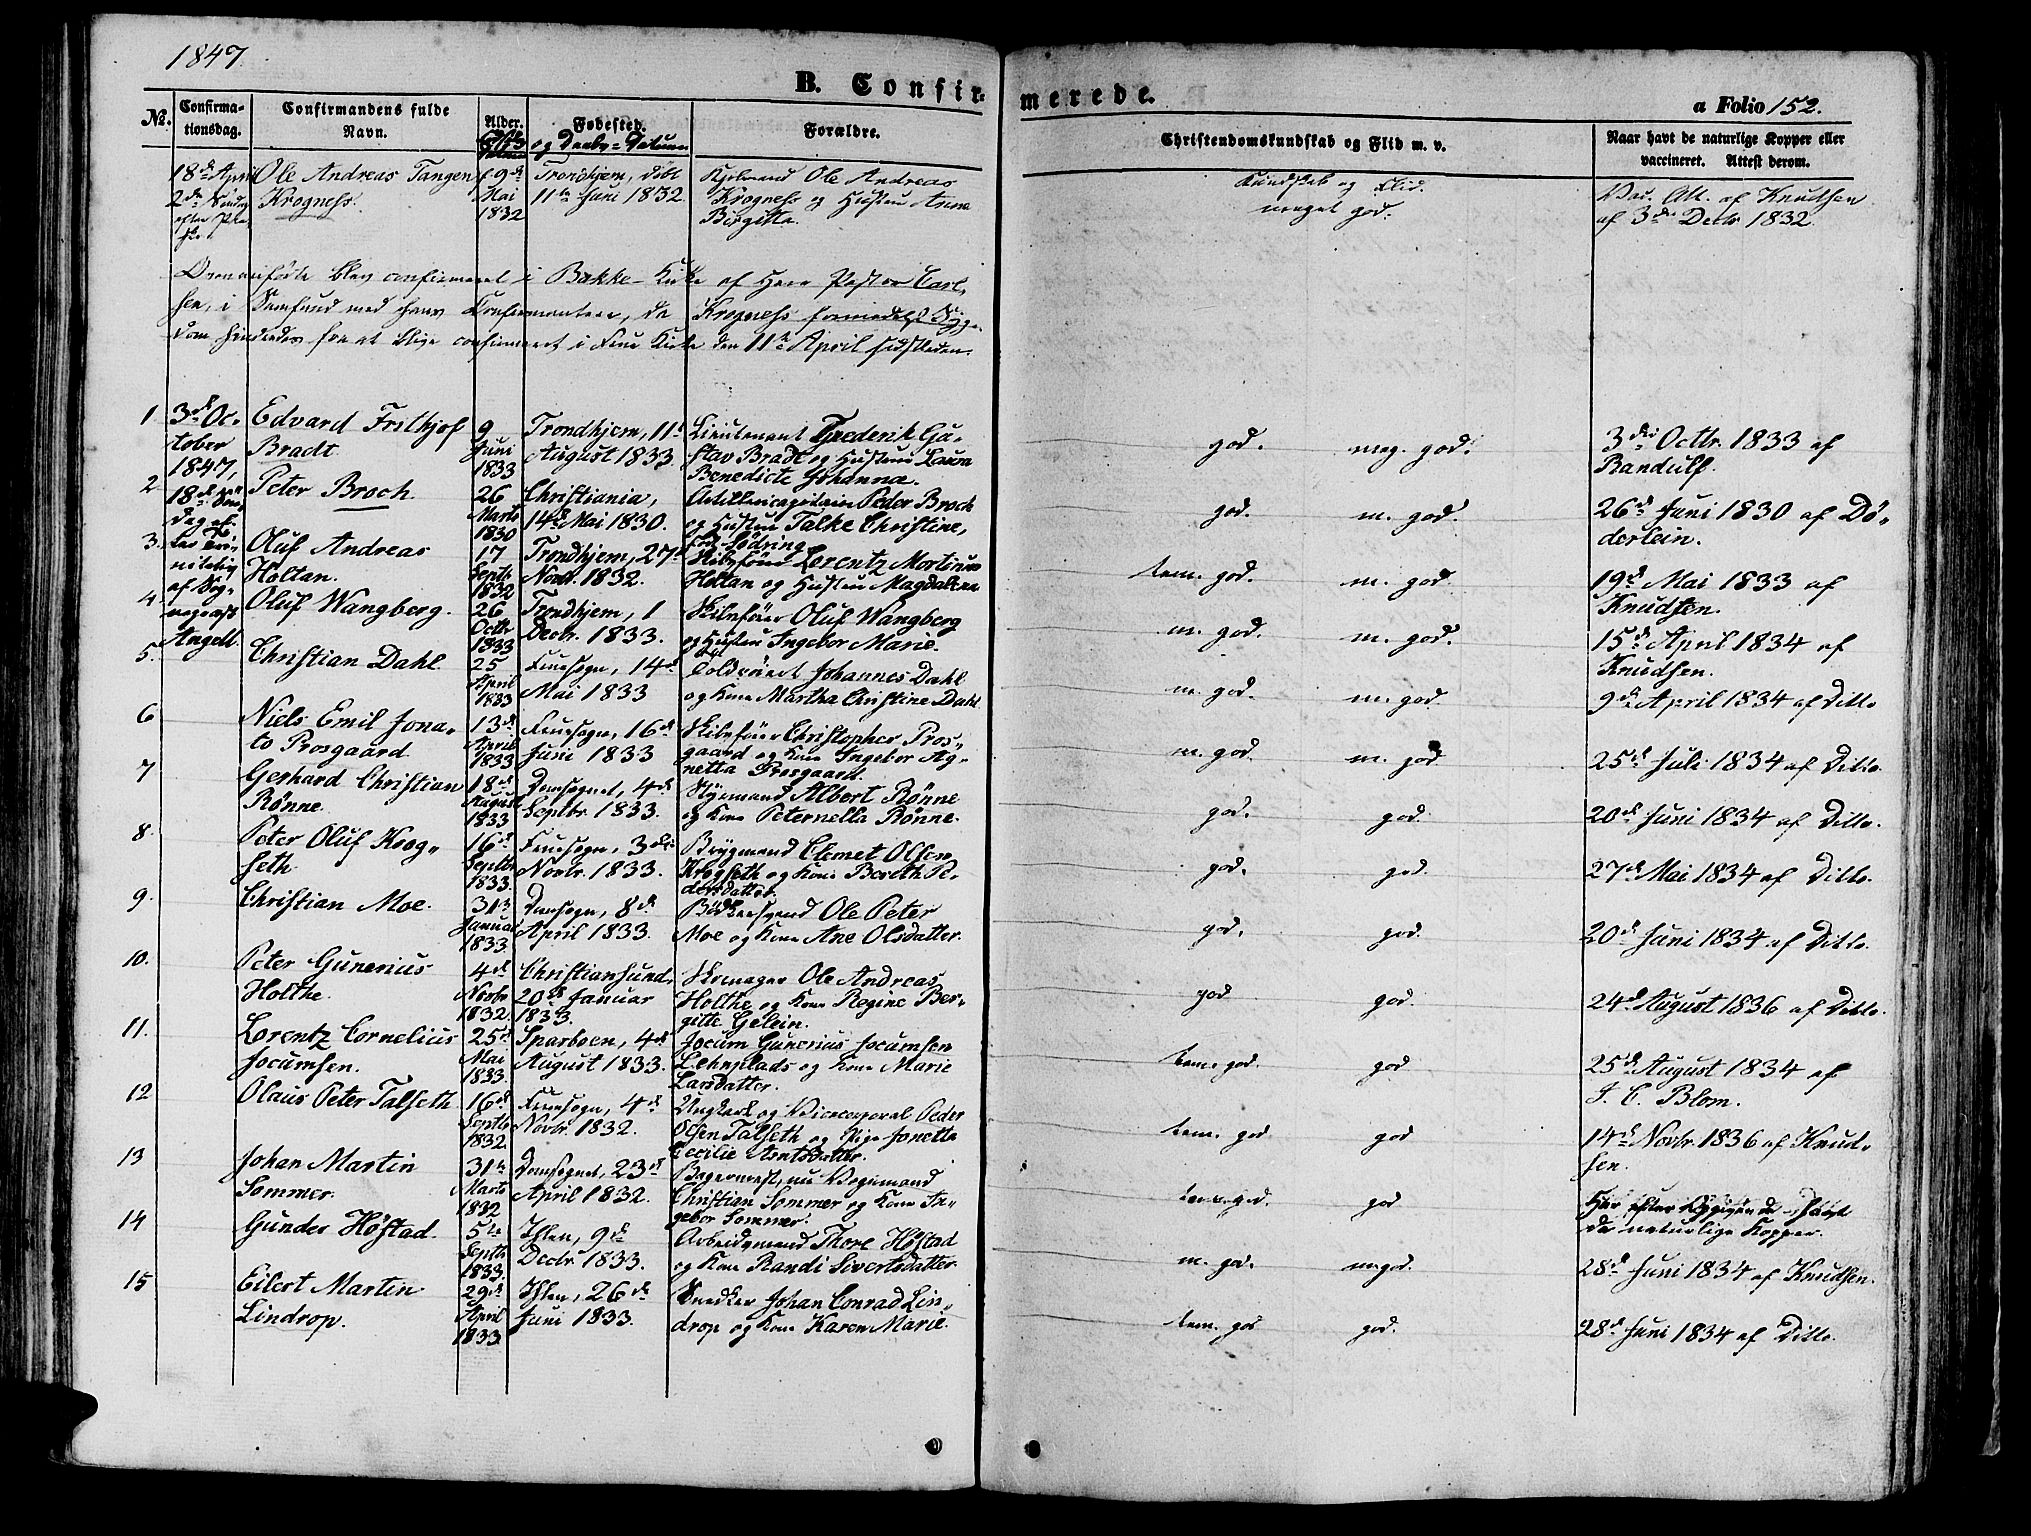 1847.
B. Confirmerede.
a Folio 152.
No.
Confirmationsdag.
Confirmandens fulde Navn.
Alder.
Fødested
og Daabs-Datum
Forældre.
Christendomskundskab og Flid m. v.
Naar havt de naturlige Kopper eller
vaccineret. Attest derom.
18de April Ole Andreas Tangen f 9de Trondhjem, døbt Ole Andreas Kundskab og Flid. Vac. Att. af Knudsen
2den Krogness. Mai 11te Juni 1832. Krogness og Hustru Anne meget god. af 3die Decbr 1832.
efter 1832 Birgitta.
Ovenanførte blev confirmeret i Bakke-Kirke af Herr Pastor Carl
sen, i Samfund med hans Confirmantere, da Krogness formedelst Syg-
dom hindredes fra at blive confirmeret i Frue Kirke den 11te April sidstleden.
1 3de Oc- Edvard Frithjof 9 Trondhjem, 11te Lieutenant Frederik Gu- god. meg. god. 3die Octbr. 1833 af
tober Bradt Juni August 1833 stav Bradt og Hustru Laura Randulf.
1847, 1833 Benedicte Johanna.
2 18de Søn- Peter Broch. 26 Christiania, Artillericapitain Peder Broch god. m. god. 26de Juni 1830 af Dø-
dag ef- Marts 14de Mai 1830. og Hustru Talke Christine, derlein.
1830 Sødring.
3. ter Tri- Oluf Andreas 17 Trondhjem, 27de Skibsfører Lorentz Mortinus tem. god. m. god. 19de Mai 1833 af
nitatis Holtan. Septb. Novbr. 1832. Holtan og Hustru Magdalena Knudsen.
af Sog- 1832
4. nepræst Oluf Wangberg. 26 Trondhjem, 1 Skibsfører Oluf Wangberg m. god. m. god. 15de April 1834 af
Angell. Octb. Decbr. 1833. og Hustru Ingebor Marie. Knudsen.
1833
5. Christian Dahl. 25 Fruesogn, 14de Johannes Dahl m. god. m. god. 9de April 1834 af Ditto
April Mai 1833 og Kone Martha Christine Dahl
1833
6 Niels Emil Jona- 13de Fruesogn, 16de Skibsfører Christopher Pros- m. god. m. god 25de Juli 1834 af Ditto.
to Prosgaard April Juni 1833 gaard og Kone Ingebor Ag-
1833 netta Prosgaard.
7 Gerhard Christian 18de Domsognet, 4de Styrmand Albert Rønne god. god. 20de Juni 1834 af Ditto.
Rønne. August Septbr. 1833. og Kone Peternella Rønne.
1833
8. Peter Oluf Krog- 16de Fruesogn, 3die Clemet Olsen god. god. 27de Mai 1834 af Ditto.
seth Septbr Novbr. 1833. Krogseth og Kone Bereth Pe-
1833. dersdatter.
9. Christian Moe. 31te Domsogn, 8de Bødkersvend Ole Peter god. god. 20de Juni 1834 af Ditto.
Januar April 1833. Moe og Kone Ane Olsdatter.
1833.
10. Peter Gunerius 4de Christiansund, Skomager Ole Andreas god god. 24de August 1836 af Ditto.
Holthe. Novbr 20de Januar Holthe og Kone Regine Ber-
1832. 1833. gitte Gelein.
11. Lorentz Cornelius 25de Sparboen, 4de Jocum Gunerius Jocumsen tem. god. god 25de August 1834 af
Jocumsen. Mai August 1833. Lehnplads og Kone Marie J. C. Blom.
1833. Larsdatter.
12 Olaus Peter Talseth 16de Fruesogn, 4de Ungkarl og Vicecorporal Peder tem. god god 14de Novbr. 1836 af Knud-
Septbr Novbr. 1832. Olsen Talseth og Pige Jonetta sen.
1832. Cecilie Arntsdatter.
13 Johan Martin 31te Domsognet, 23de Bagermest., nu Christian Sommer og Kone In- tem. god. god Har efter Opgivende havt
Sommer. Marts April 1832. gebor Sommer. de naturlige Kopper.
1832
14 Gunder Høstad. 5te Ihlen, 9de Arbeidsmand Thore Høstad m. god. m. god. 28de Juni 1834 af Knudsen.
Septbr Decbr. 1833. og Kone Randi Sivertsdatter
1833.
15 Eilert Martin 29de Ihlen, 26de Snedker Johan Conrad Lin- tem. god god. 28de Juni 1834 af Ditto.
Lindrop. April Juni 1833. drop og Kone Karen Marie.
1833